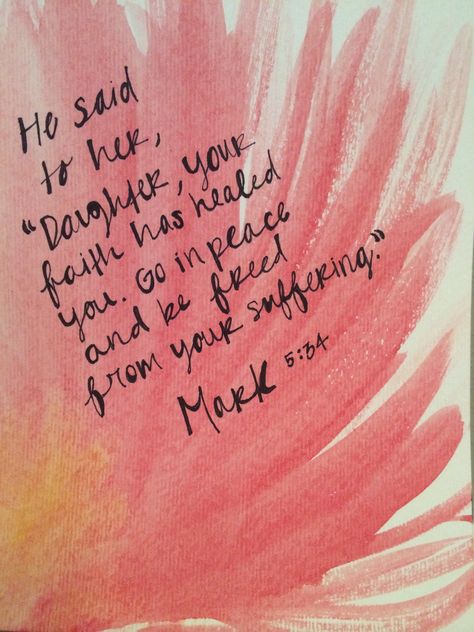 He said
to her,
"Daughter, your
faith has healed
you. Go in peace
and be freed
from your suffering."
Mark 5:34